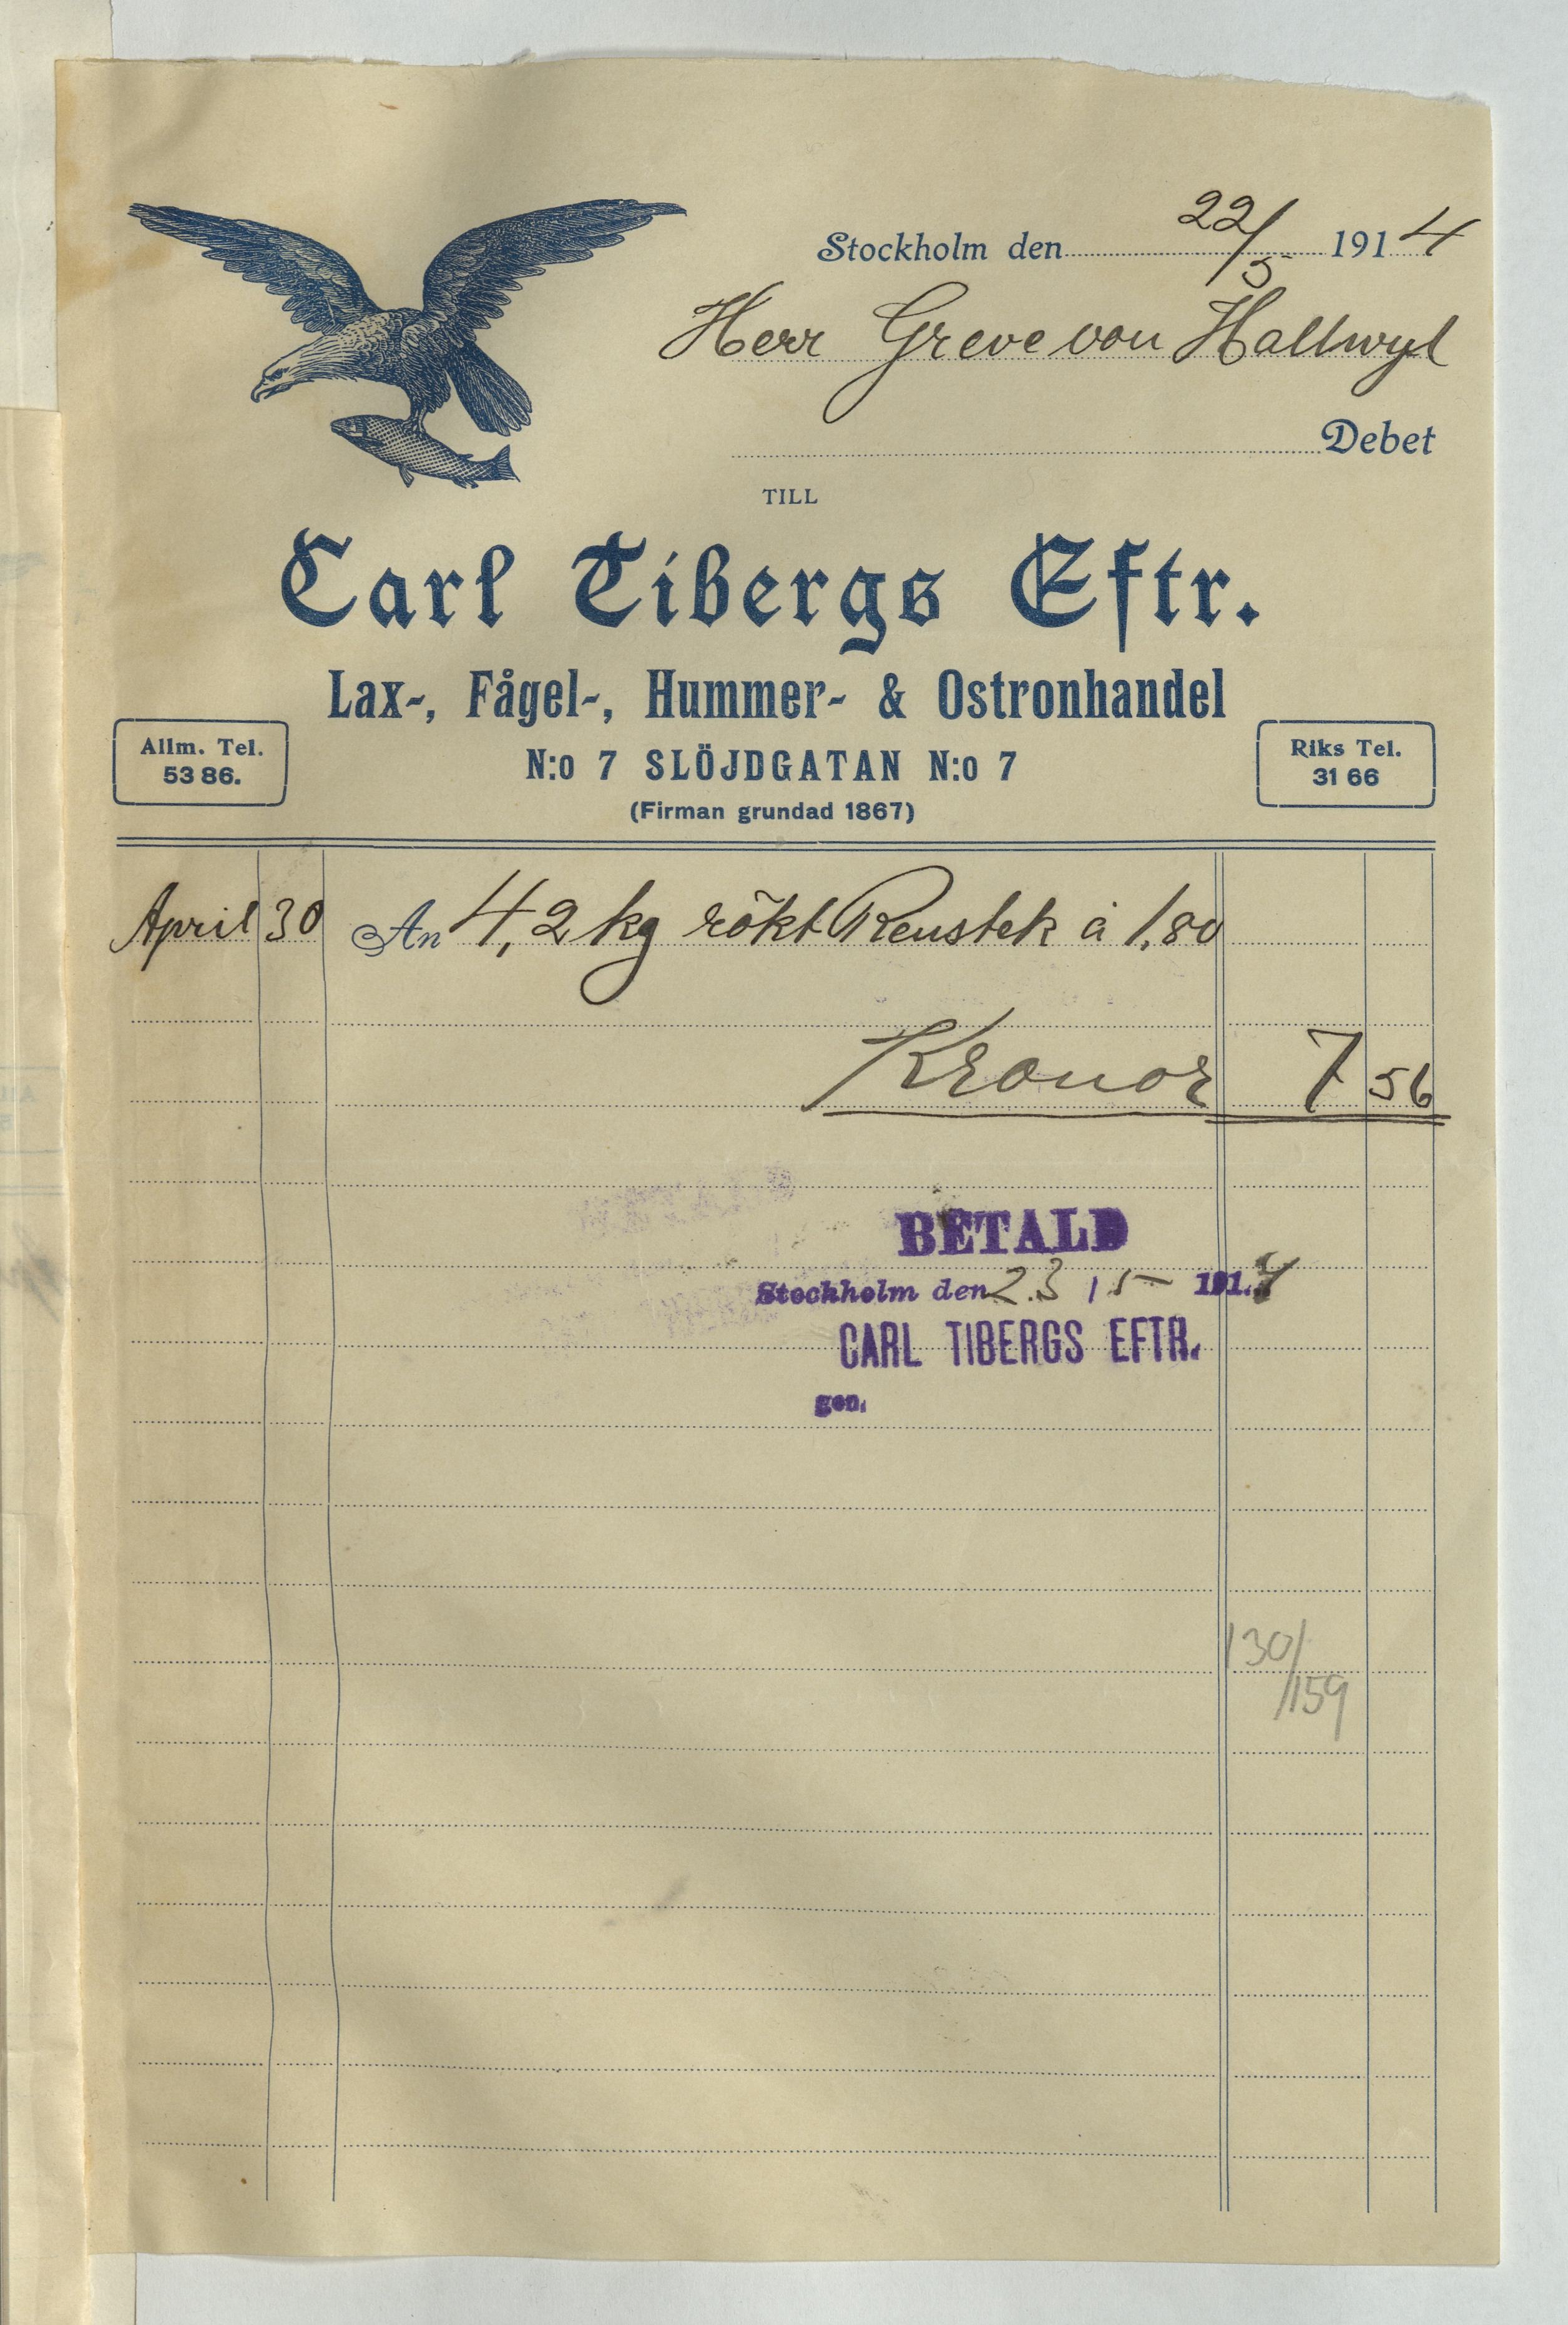 Stockholm den 22/5 1914
Herr Greve von Hallwyl
Debet
TILL
Carl Tibergs Eftr.
Lax-, Fågel-, Hummer- & Ostronhandel
Allm. Tel.
53 86.
N:o 7 SLÖJDGATAN N:o 7
Riks Tel.
31 66
(Firman grundad 1867)
April 30 An 4,2 kg rökt Renstek à 1,80
Kronor 7 56
BETALD
Stockholm den 23 / 5 1914
CARL TIBERGS EFTR.
gen.
130/
/159